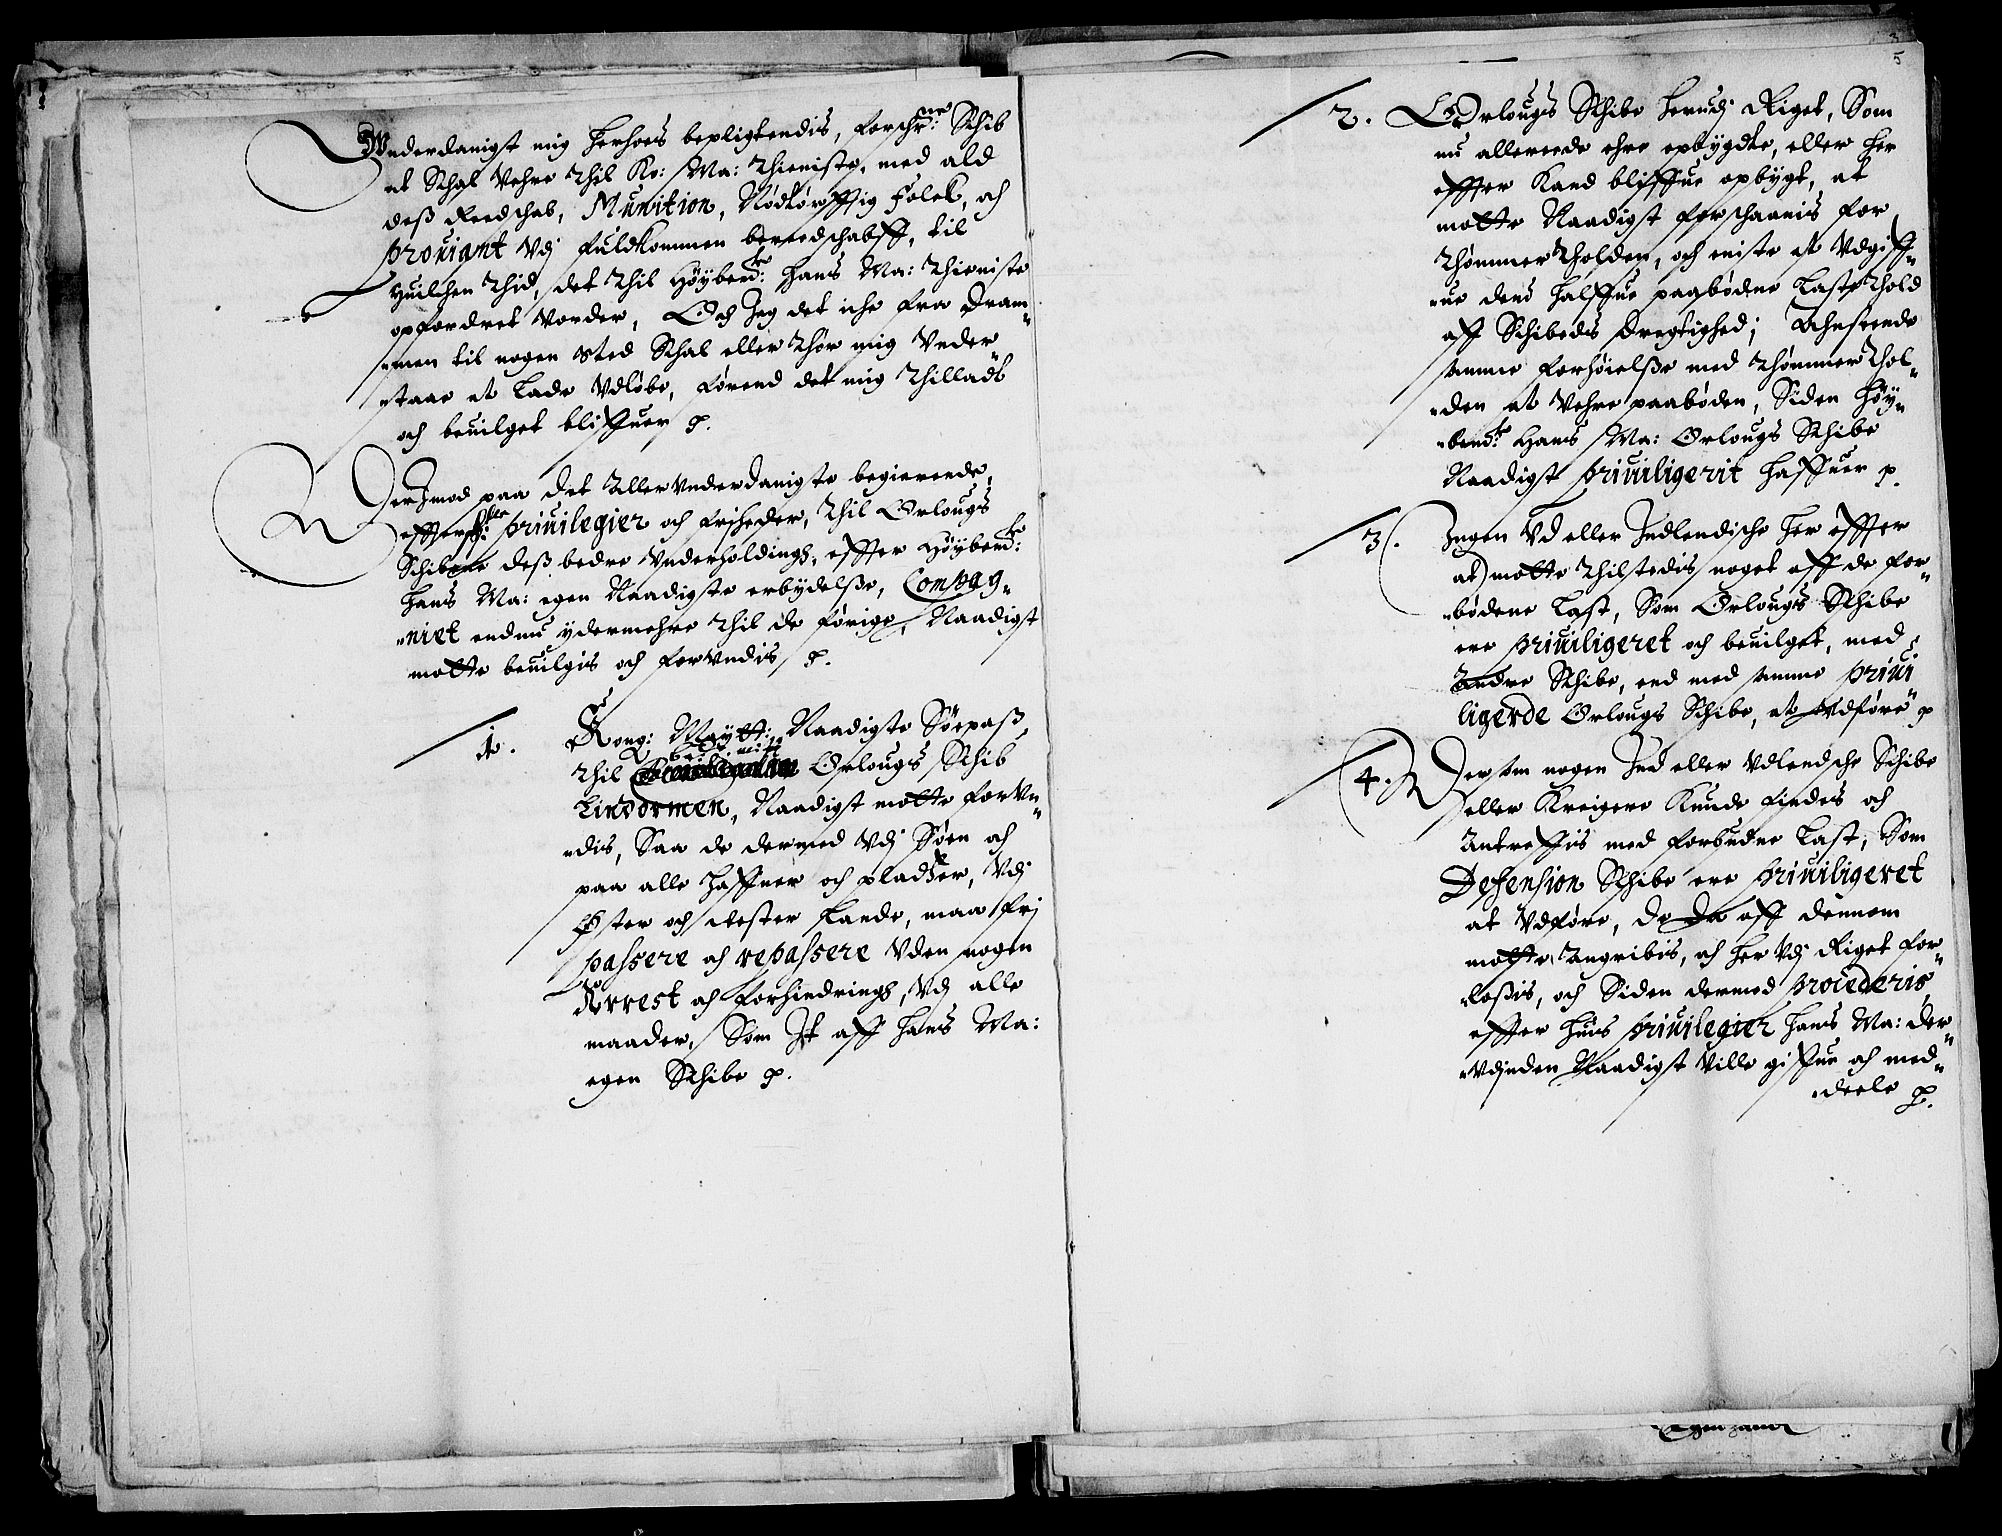 Vnderdanigst mig herhoes bepligtendis, forschr:ne Schib
at Schal Vehre thil Ko: Ma: thieniste, med ald
dess Reedschab, Munition, Nødtørfftig Folck, och
prouiant Vdj fuldkommen beredschabff, til
huilchen thid, det thil Høyberd:te Hans Ma: thieniste
opfordret Vorder, Och Jeg det iche fra Dram¬
¬men til nogen sted Schal eller thør mig Vnder
¬staae at Lade Vdløbe, førend det mig thilladt
och beuilget bliffuer p.
Derjmod paa det Allervnderdanigste begierende,
effterschr:ne priuilegier och friheder, thil Orlougs
Schibene dess bedre Vnderholdings, effter Høyberd:te
Hans Ma: egen Naadigste erbydelsse, Compag¬
¬niet endnu ydermehre thil de forige, Naadigst
motte beuilgis och forvndis p.
1. Kong: Maÿtt: Naadigste Söepass,
thil Orlougs Schib
Lindormen, Naadigst motte forvn¬
¬dis, Saa de dermed Vdj Søen och
paa alle Haffner och pladtzer, Vdj
Øster och Vester Lande, maa frj
passere och repassere Vden nogen
Arrest och forhindrings, Vdj alle
maader, Som Jt aff Hans Ma:
egen Schibe p.
5
2. Orlougs Schibe herudj Riget, Som
nu allereede ehre opbygdte, eller her
effter Kand bliffue opbygt, at
motte Naadigst forschaanis for
thømmer tholden, och miste at Vdgiff¬
¬ue dend halffue paabødne Laste thold
aff Schibedis dregtighed; Anseende
samme forhøielsse med thømmer thol¬
¬den at Vehre paabøden, Siden Høy¬
¬bemd:te Hans Ma: Orlougs Schibe
Naadigst priuiligerit haffuer p.
3. Ingen Vd eller Indlendische her effter
at motte thilstedis noget aff de for¬
¬bødene Last, Som Orlougs Schibe
ere priuiligeret och beuilget, med
Andre Schibe, end med samme priui
ligerde Orlougs Schibe, at Vdføre p
4. Dersom nogen Ind eller Vdlendsche Schibe
eller Kreigere Kunde findes och
Antreffis med forbudne Last, Som
Defension Schibe ere priuiligeret
at Vdføre, de da aff dennem
motte Angribis, och her Vdj Riget for¬
¬lossis, och Siden dermed procederis,
effter huis priuilegier Hans Ma: der
¬Vdjnden Naadigst Ville giffue och med¬
¬deele p.